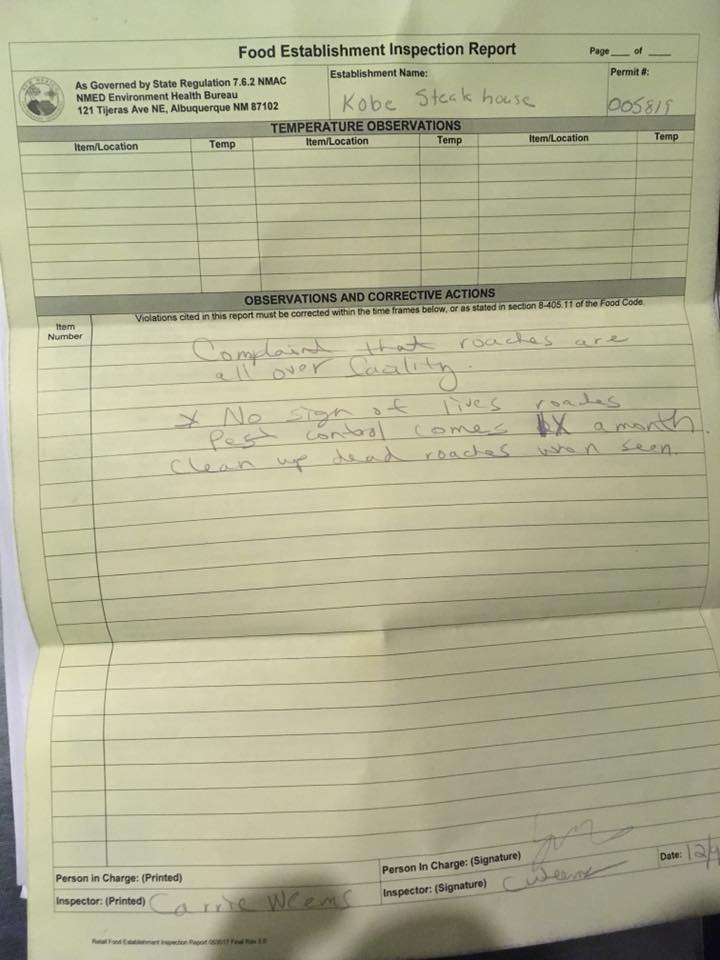 Food Establishment Inspection Report
Page ___ of ___
As Governed by State Regulation 7.6.2 NMAC
NMED Environment Health Bureau
121 Tijeras Ave NE, Albuquerque NM 87102
Establishment Name:
Kobe Steak house
Permit #:
005819
TEMPERATURE OBSERVATIONS
Item/Location Temp Item/Location Temp Item/Location Temp
OBSERVATIONS AND CORRECTIVE ACTIONS
Item Number
Violations cited in this report must be corrected within the time frames below, or as stated in section 8-405.11 of the Food Code.
Complaint that roaches are
all over facility.
* No sign of lives roaches
Pest control comes X a month.
Clean up dead roaches seen.
Person in Charge: (Printed)
Person In Charge: (Signature)
Date: 12/
Inspector: (Printed) Carrie Weems
Inspector: (Signature) CWeems
Retail Food Establishment Inspection Report Final Rev